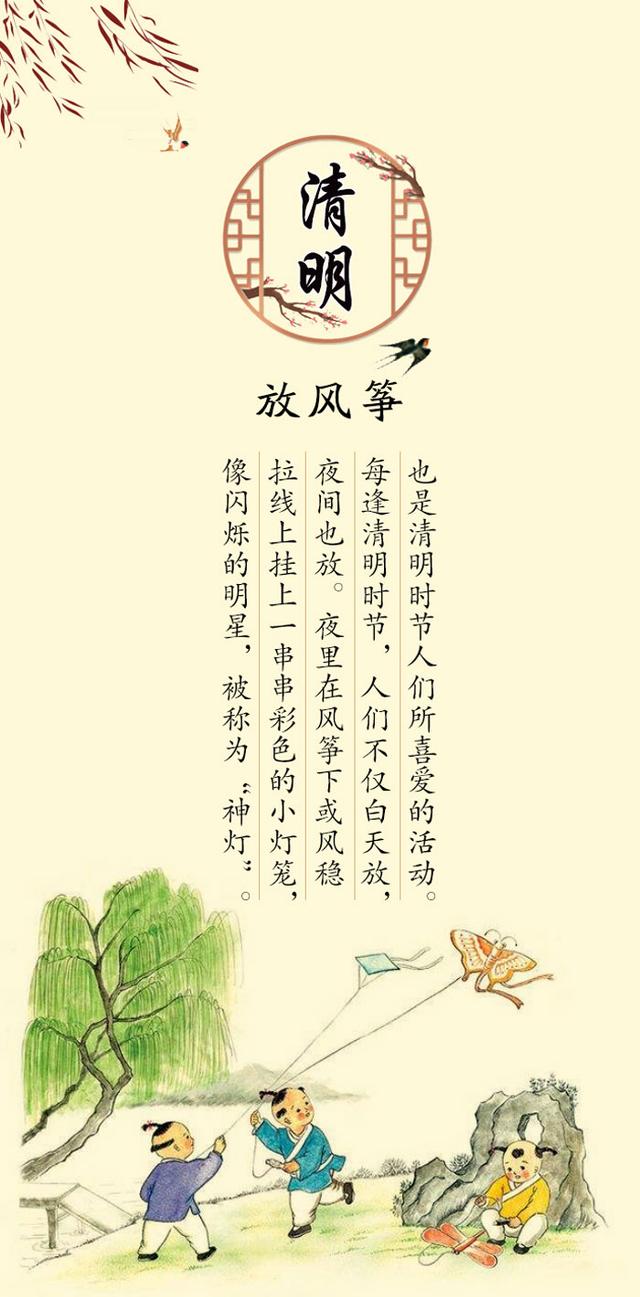 清明
放风筝
也是清明时节人们所喜爱的活动。
每逢清明时节，人们不仅白天放，
夜间也放。夜里在风筝下或风稳
拉线上挂上一串串彩色的小灯笼，
像闪烁的明星，被称为“神灯”。